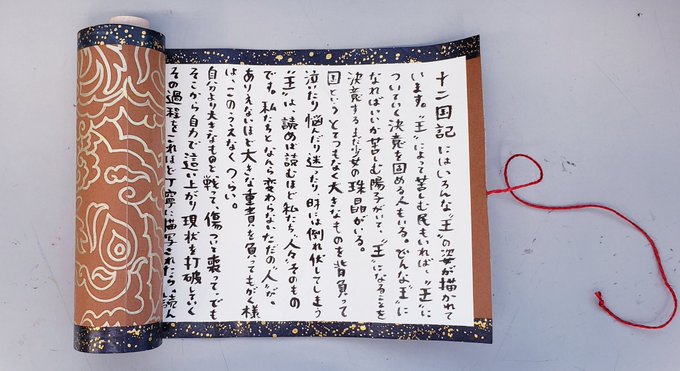 十二国記にはいろんな“王”の姿が描かれて
います。“王”によって苦しむ民もいれば、“王”に
ついていく決意を固める人もいる。どんな“王”に
なればいいか苦しむ陽子がいて、“王”になることを
決意するまだ少女の珠晶がいる。
国というとてつもなく大きなものを背負って
泣いたり悩んだり迷ったり、時には倒れ伏してしまう
“王”は、読めば読むほど私たち“人々”そのもの
です。私たちとなんら変わらないただの“人”が、
ありえないほど大きな重責を負ってもがく様
は、このうえなくつらい。
自分より大きなものと戦って、傷ついて喪って、でも
そこから自力で這い上がり現状を打破していく
その過程をこれほど丁寧に描写されたら、読ん